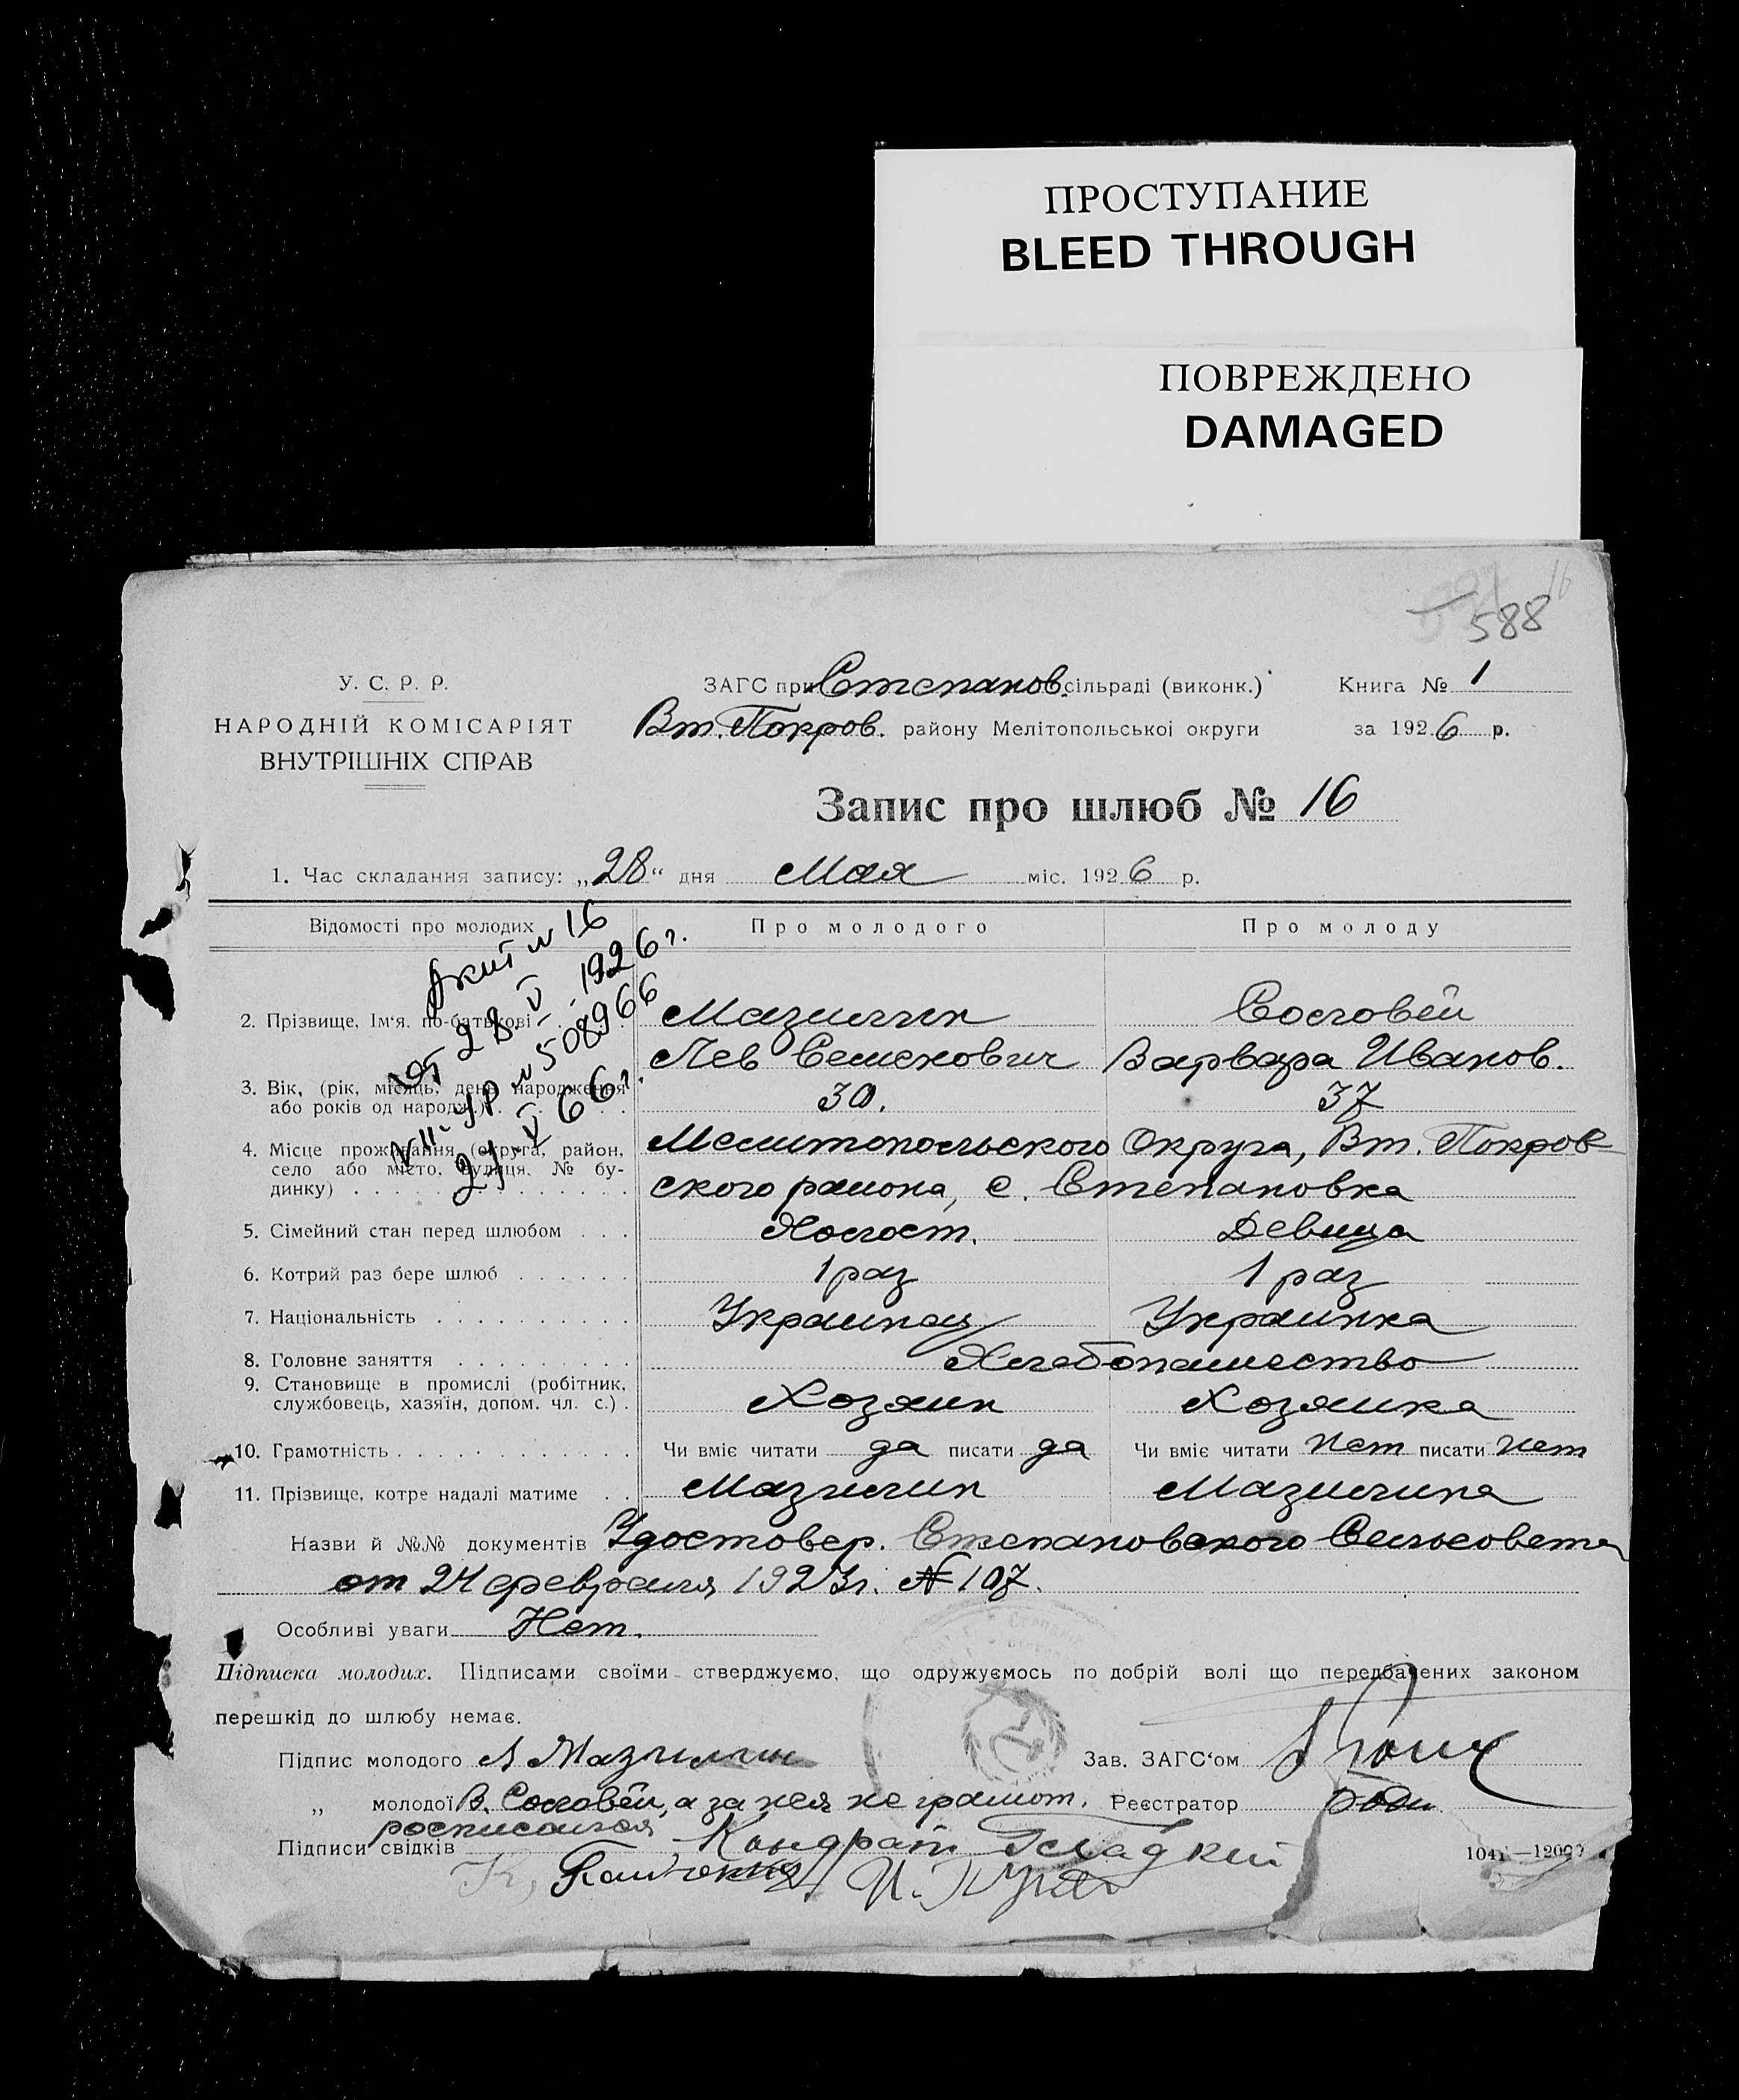 ПРОСТУПАНИЕ
BLEED THROUGH
ПОВРЕЖДЕНО
DAMAGED
588
У. С. Р. Р.
НАРОДНІЙ КОМІСАРІЯТ
ВНУТРІШНІХ СПРАВ
ЗАГС при Степанов. сільраді (виконк.)
Книга № 1
Вт. Покров. району Мелітопольської округи
за 1926 р.
Запис про шлюб № 16
1. Час складання запису: „28“ дня Мая міс. 1926 р.
Відомості про молодих
Про молодого
Про молоду
Акт № 16
от 28 V - 1926 г.
№ 508966
27 V 66 г.
2. Прізвище, Ім'я, по-батькові
Мазилин
Соловей
Лев Семенович
Варвара Иванов.
3. Вік, (рік, місяць, день народження
або років од народж.)
30.
37
4. Місце проживання (округа, район,
село або місто, вулиця, № бу-
динку)
Мелитопольского Округа, Вт. Покров-
ского района, с. Степановка
5. Сімейний стан перед шлюбом
Холост.
Девица
6. Котрий раз бере шлюб
1 раз
1 раз
7. Національність
Украинец
Украинка
8. Головне заняття
Хлебопашество
9. Становище в промислі (робітник,
службовець, хазяїн, допом. чл. с.)
Хозяин
Хозяика
10. Грамотність
Чи вміє читати да писати да
Чи вміє читати нет писати нет
11. Прізвище, котре надалі матиме
Мазилин
Мазилина
Назви й №№ документів Удостовер. Степановского Сельсовета
от 24 февраля 1923 г. № 107.
Особливі уваги Нет.
Підписка молодих. Підписами своїми стверджуємо, що одружуємось по добрій волі що передбачених законом
перешкід до шлюбу немає.
Підпис молодого Л Мазилин
Зав. ЗАГС'ом
„ молодої В. Соловей, а за нея не грамот.
Реєстратор
росписался
Підписи свідків Кондрат Гладкий
1041—12000